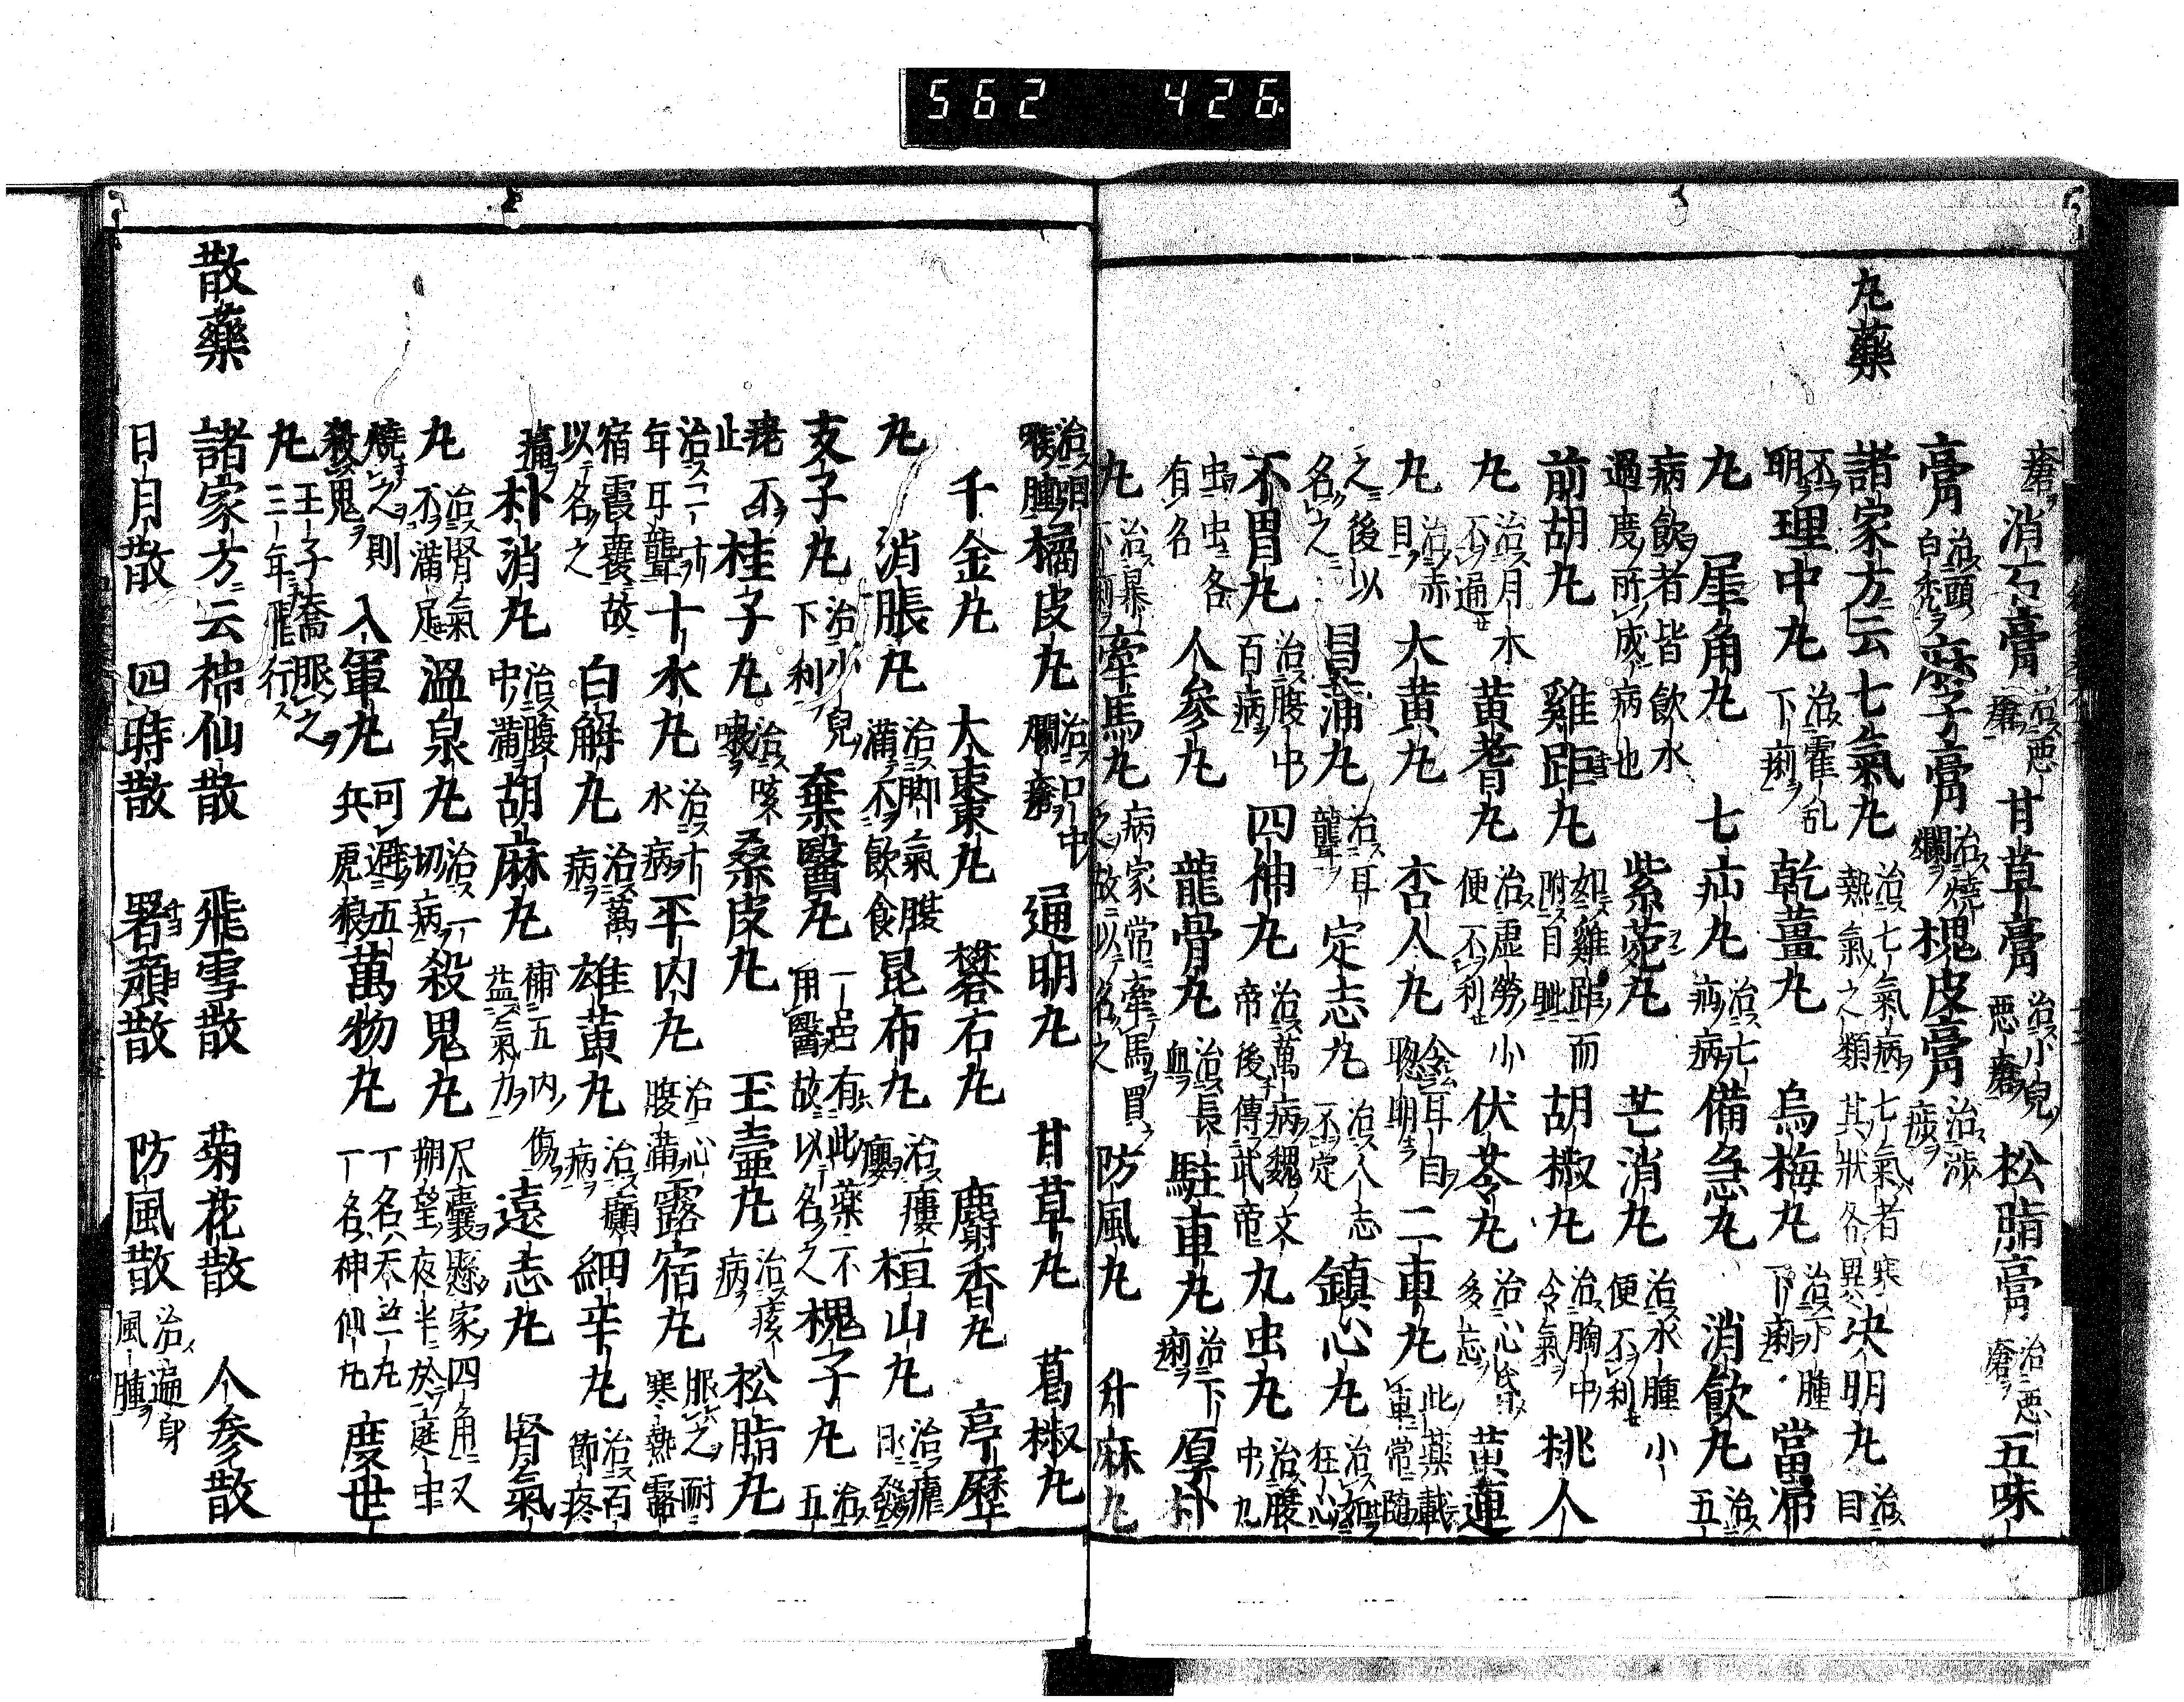 562 426
瘡消石膏治悪瘡甘草膏治小兒悪瘡松脂膏治悪瘡五味
膏治頭白禿麻子膏治燒爛槐皮膏治渉疲
丸藥
諸家方云七氣丸治七氣病熱氣之類七氣者寒其狀各異决明丸治目
不明理中丸治霍乱下痢乾薑丸烏梅丸治下腫下痢當帰
丸犀角丸七疝丸治七疝病備急丸消飲丸治五
病飲者皆飲水過度所成病也紫菀丸芒消丸治水腫小便不利桃人
前胡丸雞距丸如雞距而附目眦胡椒丸治胸中冷氣黄連
丸治月水不通黄耆丸治虛勞小便不利伏苓丸治心多忘
丸治赤目大黄丸杏人丸令耳目聰明二車丸此藥載車常隨
之後以名之昌蒲丸治耳聾定志丸治人志不定鎮心丸治狂心
不胃丸治腹中百病四神丸治萬病魏文帝後傳武帝九虫丸治腹中九
虫虫各有名人參丸龍骨丸治長血駐車丸治下痢厚朴
丸治暴下痢牽馬丸病家常牽馬買之故以名之防風丸升麻丸
治咽喉腫橘皮丸治口中爛瘡通明丸甘草丸葛椒丸
千金丸大棗丸礬石丸麝香丸亭歷
丸消脹丸治脚氣腹滿不飲食昆布丸治癭桓山丸治瘧日發
支子丸治小兒下利棄醫丸一邑有此藥不用醫故以名之槐子丸治五
痔不止桂子丸治咳嗽桑皮丸王壷丸治痎病松脂丸
治二十年耳聾十水丸治十水病平内丸治心腹滿露宿丸服之耐寒熱露
宿霞襄故以名之白解丸治萬病雄黄丸治癲病細辛丸治百節疼
痛朴消丸治腹中滿胡麻丸補五内益氣力傷遠志丸腎氣
丸治腎氣不滿足溫泉丸治一切病殺鬼丸尺囊懸家四角又朔望夜半於庭中
燒之則殺鬼入軍丸可避五兵虎狼萬物丸一名天近丸一名神仙丸度世
丸王子喬服之三年飛行
散藥
諸家方云神仙散飛雪散菊花散人参散
日月散四時散署預散防風散治遍身風腫